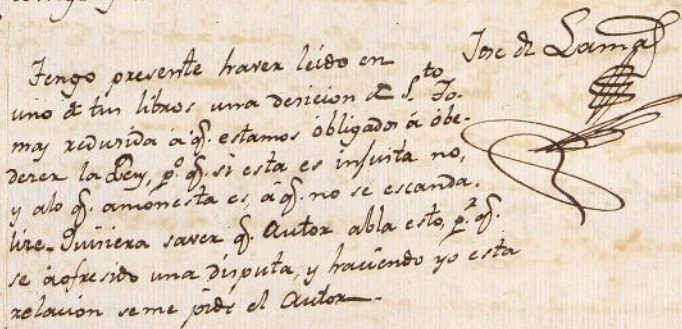 Tengo presente haver leido en
uno de tus libros una desicion de S.to To-
mas redusida á q.e estamos obligados á obe-
deser la Ley, p.o q.e si esta es injusta no,
y alo q.e amonesta es, á q.e no se escanda-
lise. Quisiera saver q.e Autor abla esto, p.r q.e
se á ofresido una disputa, y haviendo yo esta
relasion seme pide el Autor.
Jose de Lama